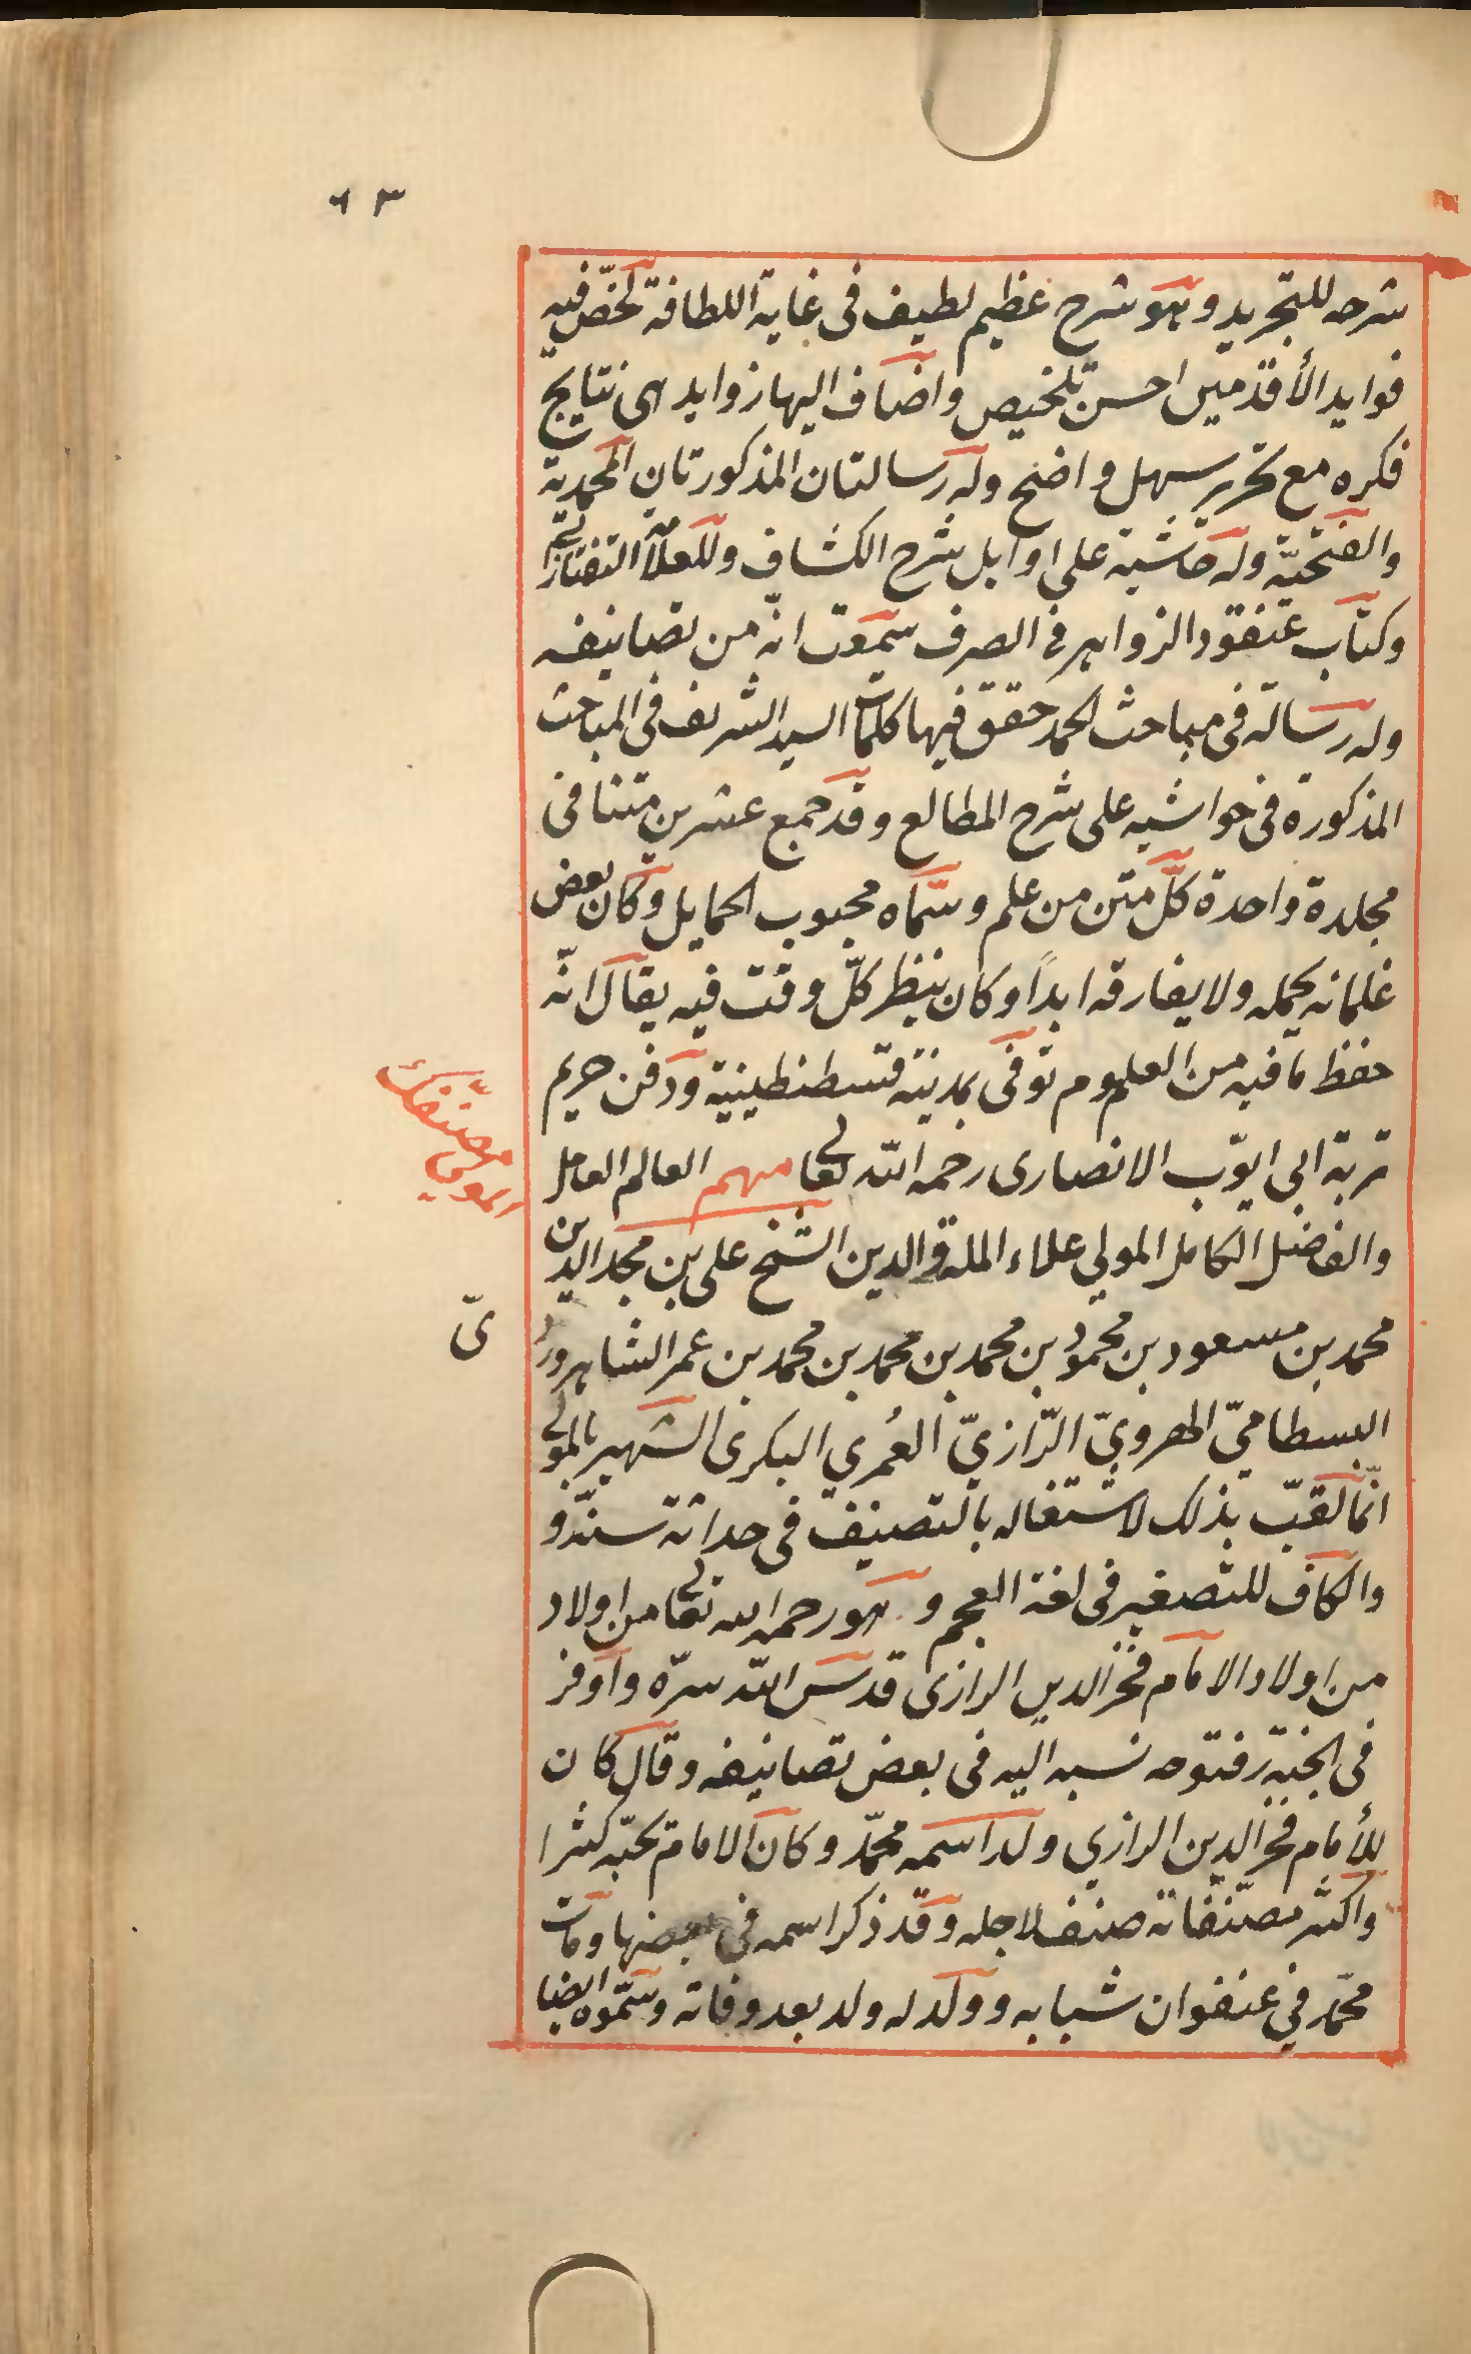 ٦٣
شرحه للتجريد وهو شرح عظيم لطيف فى غاية اللطافة لخّص فيه
فوايد الأقدمين احسن تلخيص واضاف اليها زوايد هى نتايج
فكره مع تحرير سهل واضح وله رسالتان المذكورتان المحمدية
والفتحيّة وله حاشية على اوايل شرح الكشاف وللعلامة التفتازانى
وكتاب عنقود الزواهر فى الصرف سمعت انه من تصانيفه
وله رسالة فى مباحث الحمد حقق فيها كلمات السيد الشريف فى المباحث
المذكورة فى حواشيه على شرح المطالع وقد جمع عشرين متنا فى
مجلدة واحدة كلّ متن من علم وسمّاه محبوب الحمايل وكان بعض
غلمانه يحمله ولا يفارقه ابداً وكان ينظر كلّ وقت فيه يقال انّه
حفظ ما فيه من العلوم توفى بمدينة قسطنطينية ودفن حريم
تربة ابى ايوّب الانصارى رحمه الله تعا منهم العالم العامل
والفاضل الكامل المولي علاء الملة والدين الشيخ على بن مجد الدين
محمد بن مسعود بن محمود بن محمد بن محمد بن محمد بن عمر الشاهرود
البسطاميّ الهرويّ الرّازيّ العُمري البكرى الشهير بالمولى
انّما لقبّ بذلك لاشتغاله بالتصنيف فى حداثة سنّه و
والكاف للتصغير فى لغة العجم وهو رحمه الله تعا من اولاد
من اولاد الامام فخر الدين الرازى قدس الله سرّه واوفر
فى الجنة فتوحه نسبه اليه فى بعض تصانيفه وقال كان
للأمام فخر الدين الرازي ولد اسمه محمّد وكان الامام يحبّه كثرا
واكثر مصنّفاته صنف لاجله وقد ذكر اسمه في بعضها ومات
محمّد في عنفوان شبابه وولد له ولد بعد وفاته وسمّوه ايضا
المولى
مصنّفك
ىّ